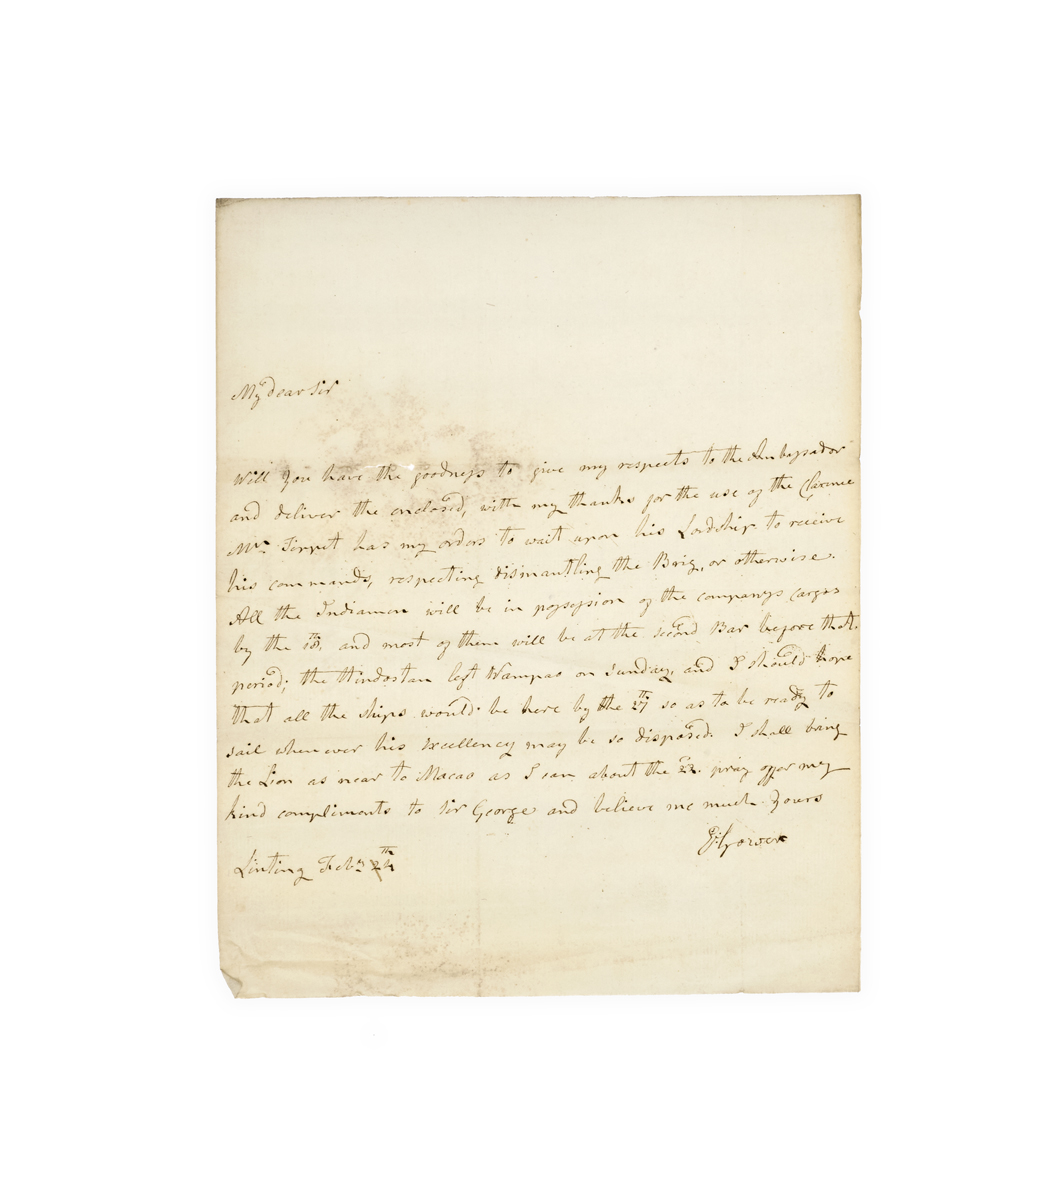 My dear Sir
Will you have the goodness to give my respects to the Ambassador
and deliver the enclosed, with my thanks for the use of the Clarence
Mr. has my orders to wait upon his Lordship to receive
his commands, respecting dismantling the Brig, or otherwise.
All the Indiamen will be in possession of the companys cargos
by the 18th, and most of them will be at the second Bar before that
period; the Hindostan left Wampao on Sunday, and I should hope
that all the ships would be here by the 27th so as to be ready to
sail whenever his Excellency may be so disposed. I shall bring
the Lion as near to Macao as I can about the pray offer my
kind compliments to Sir George and believe me much yours
E: Gower
Linting Feby